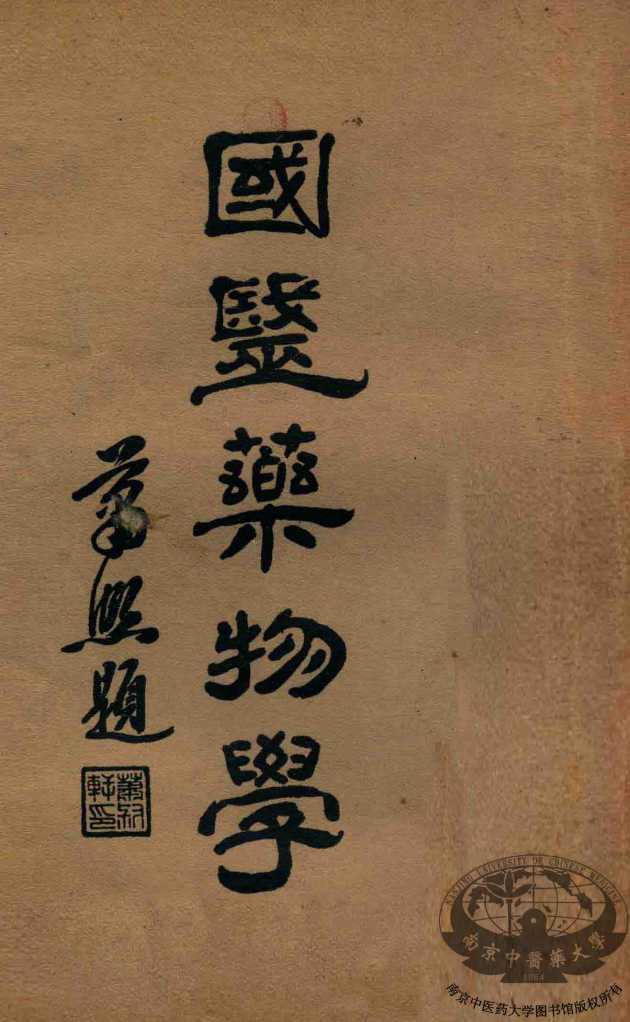 國毉藥物學
蕭熙題
蕭叔軒印
NANJING UNIVERSITY OF CHINESE MEDICINE
南京中醫藥大學
1954
南京中医药大学图书馆版权所有